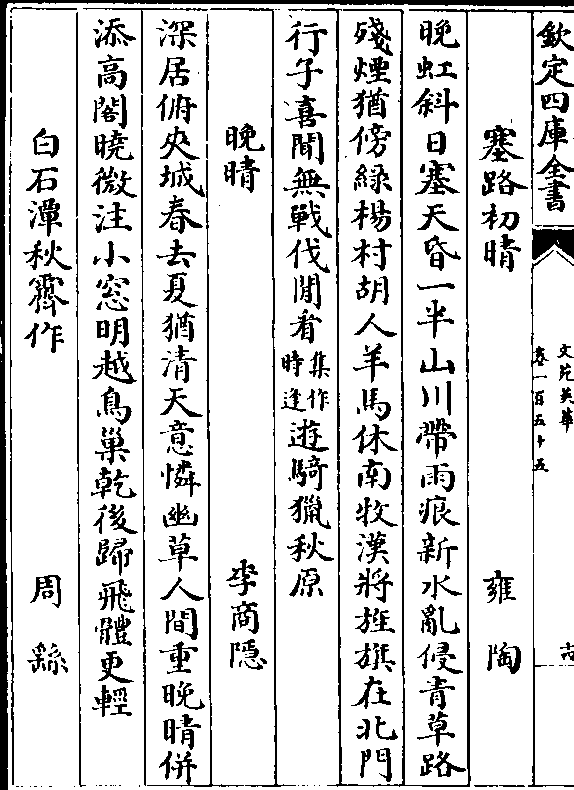 欽定四庫全書
文苑英華
卷一百五十五
塞路初晴 雍陶
晚虹斜日塞天昏一半山川帶雨痕新水亂侵青草路
殘煙猶傍綠楊村胡人羊馬休南牧漢將旌旗在北門
行子喜聞無戰伐閒看集作時逢遊騎獵秋原
晚晴 李商隱
深居俯夾城春去夏猶清天意憐幽草人間重晚晴併
添高閣曉微注小窓明越鳥巢乾後歸飛體更輕
白石潭秋霽作 周繇